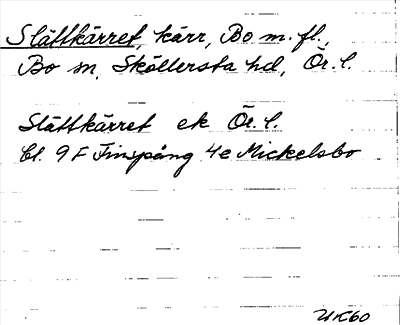 Slättkärret, kärr, Bo m.fl.,
Bo sn, Sköllersta hd, Ör. l.
Slättkärret ek Ör. l.
bl. 9F Finspång 4e Mickelsbo
UK60